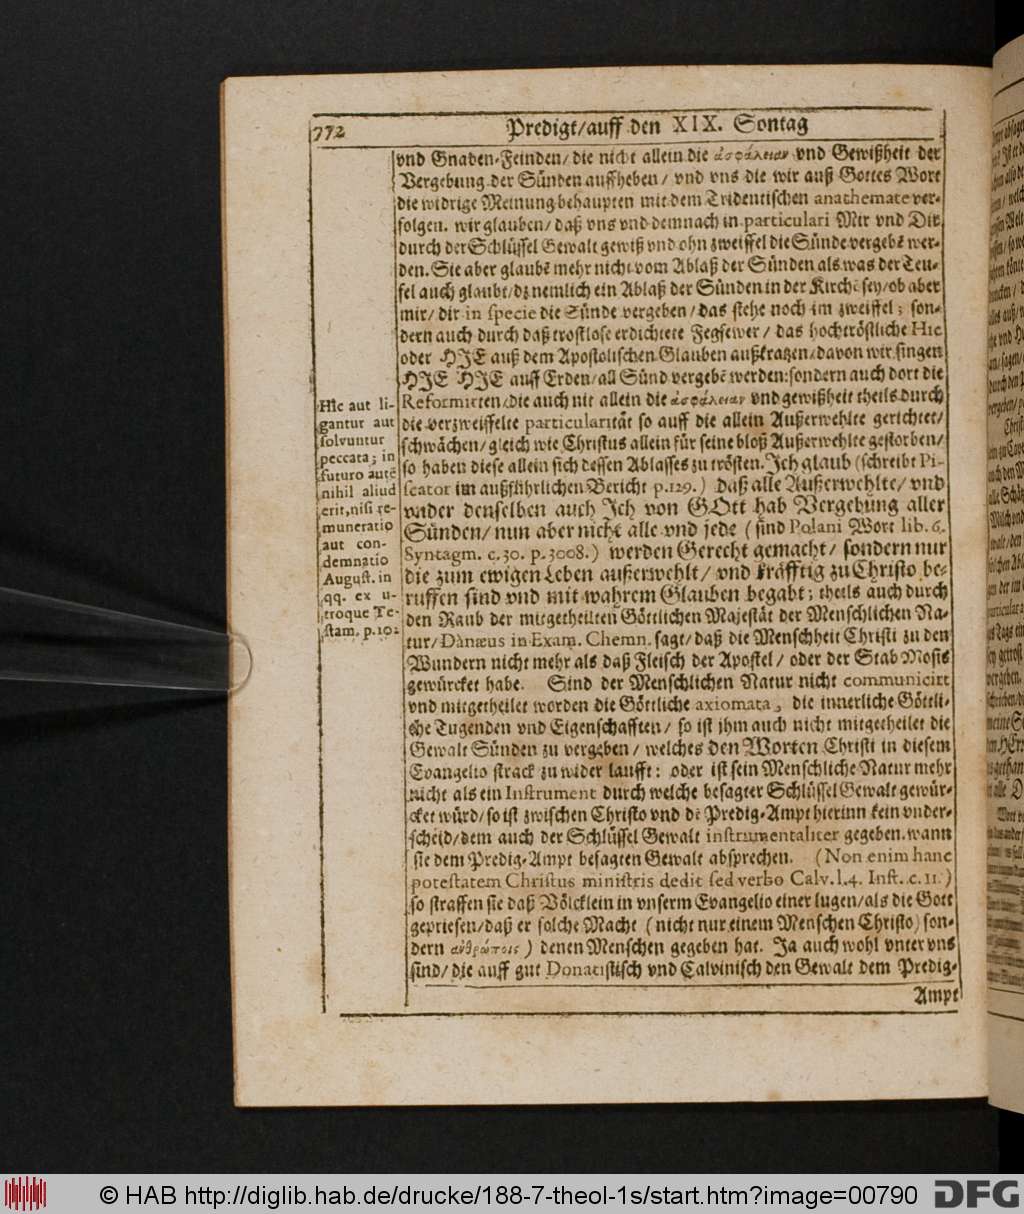 772
Predigt/auff den XIX. Sontag
vnd Gnaden-Feinden/ die nicht allein die ἀσφάλειαν vnd Gewißheit der
Vergebung der Sünden auffheben/ vnd vns die wir auß Gottes Wort
die widrige Meinung behaupten mit dem Tridentischen anathemate ver-
folgen. wir glauben/ daß vns vnd demnach in particulari Mir vnd Dir
durch der Schlüssel Gewalt gewiß vnd ohn zweiffel die Sünde vergebē wer-
den. Sie aber glaubē mehr nicht vom Ablaß der Sünden als was der Teu-
fel auch glaubt/ dz nemlich ein Ablaß der Sünden in der Kirchē sey/ ob aber
mir/ dir in specie die Sünde vergeben/ das stehe noch im zweiffel; son-
dern auch durch daß trostlose erdichtete Fegfewer/ das hochtröstliche Hic
oder HIE auß dem Apostolischen Glauben außkratzen/ davon wir singen
HIE HIE auff Erden/ all Sünd vergebē werden: sondern auch dort die
Reformirten/ die auch nit allein die ἀσφάλειαν vnd gewißheit theils durch
die verzweiffelte particularität so auff die allein Außerwehlte gerichtet/
schwächen/ gleich wie Christus allein für seine bloß Außerwehlte gestorben/
so haben diese allein sich dessen Ablasses zu trösten. Ich glaub (schreibt Pi-
scator im außführlichen Bericht p. 129.) daß alle Außerwehlte/ vnd
vnder denselben auch Ich von GOtt hab Vergebung aller
Sünden/ nun aber nicht alle vnd jede (sind Polani Wort lib. 6.
Syntagm. c. 30. p. 3008.) werden Gerecht gemacht/ sondern nur
die zum ewigen Leben außerwehlt/ vnd kräfftig zu Christo be-
ruffen sind vnd mit wahrem Glauben begabt; theils auch durch
den Raub der mitgetheilten Göttlichen Majestät der Menschlichen Na-
tur/ Danæus in Exam. Chemn. sagt/ daß die Menschheit Christi zu den
Wundern nicht mehr als daß Fleisch der Apostel/ oder der Stab Mosis
gewürcket habe. Sind der Menschlichen Natur nicht communicirt
vnd mitgetheilet worden die Göttliche axiomata, die innerliche Göttli-
che Tugenden vnd Eigenschafften/ so ist jhm auch nicht mitgetheilet die
Gewalt Sünden zu vergeben/ welches den Worten Christi in diesem
Evangelio strack zu wider laufft: oder ist sein Menschliche Natur mehr
nicht als ein Instrument durch welche besagter Schlüssel Gewalt gewür-
cket würd/ so ist zwischen Christo vnd dē Predig-Ampt hierinn kein vnder-
scheid/ dem auch der Schlüssel Gewalt instrumentaliter gegeben. wann
sie dem Predig-Ampt besagten Gewalt absprechen. (Non enim hanc
potestatem Christus ministris dedit sed verbo Calv. l. 4. Inst. c. 11.)
so straffen sie daß Völcklein in vnserm Evangelio einer lugen/ als die Gott
gepriesen/ daß er solche Macht (nicht nur einem Menschen Christo) son-
dern ἀνθρώποις) denen Menschen gegeben hat. Ja auch wohl vnter vns
sind/ die auff gut Donatistisch vnd Calvinisch den Gewalt dem Predig-
Ampt
Hîc aut li-
gantur aut
solvuntur
peccata; in
futuro autē
nihil aliud
erit, nisi re-
muneratio
aut con-
demnatio
August. in
qq. ex u-
troque Te-
stam. p. 102
© HAB http://diglib.hab.de/drucke/188-7-theol-1s/start.htm?image=00790
DFG